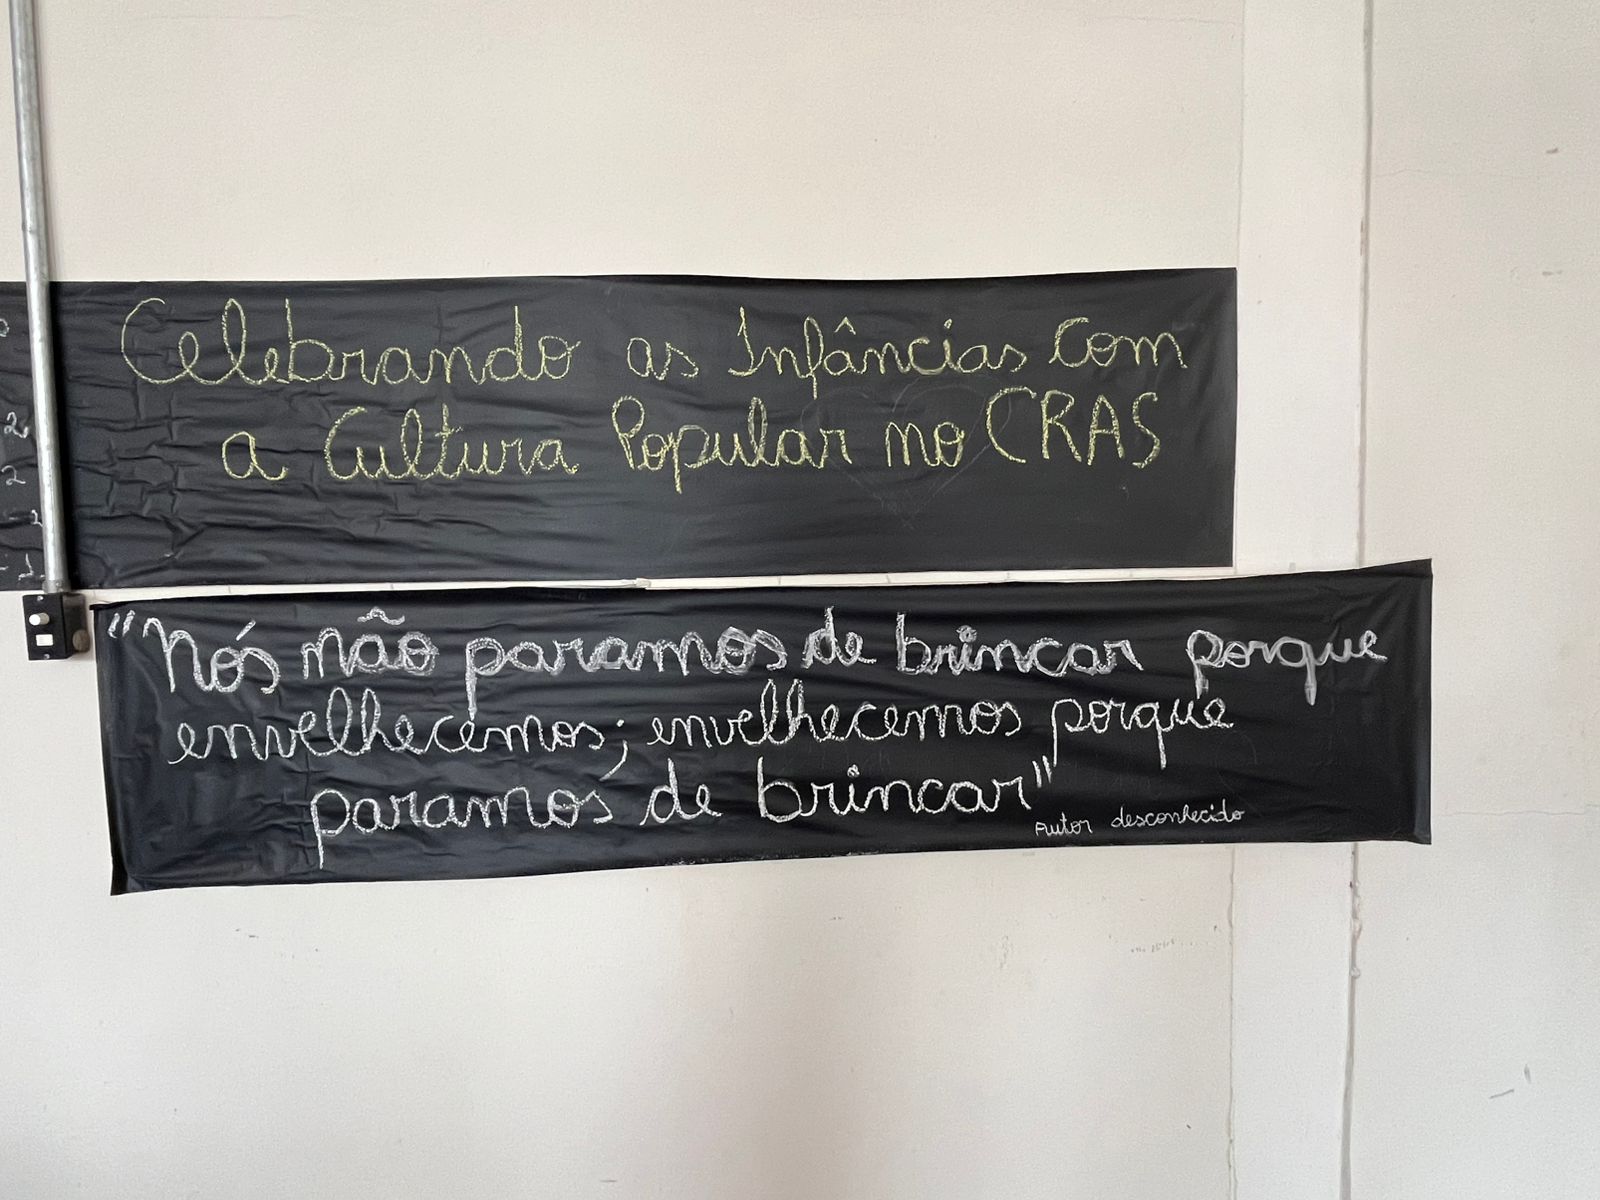 Celebrando as Infâncias com
a Cultura Popular no CRAS
2
2
2
1
"Nós não paramos de brincar porque
envelhecemos; envelhecemos porque
paramos de brincar"
Autor desconhecido